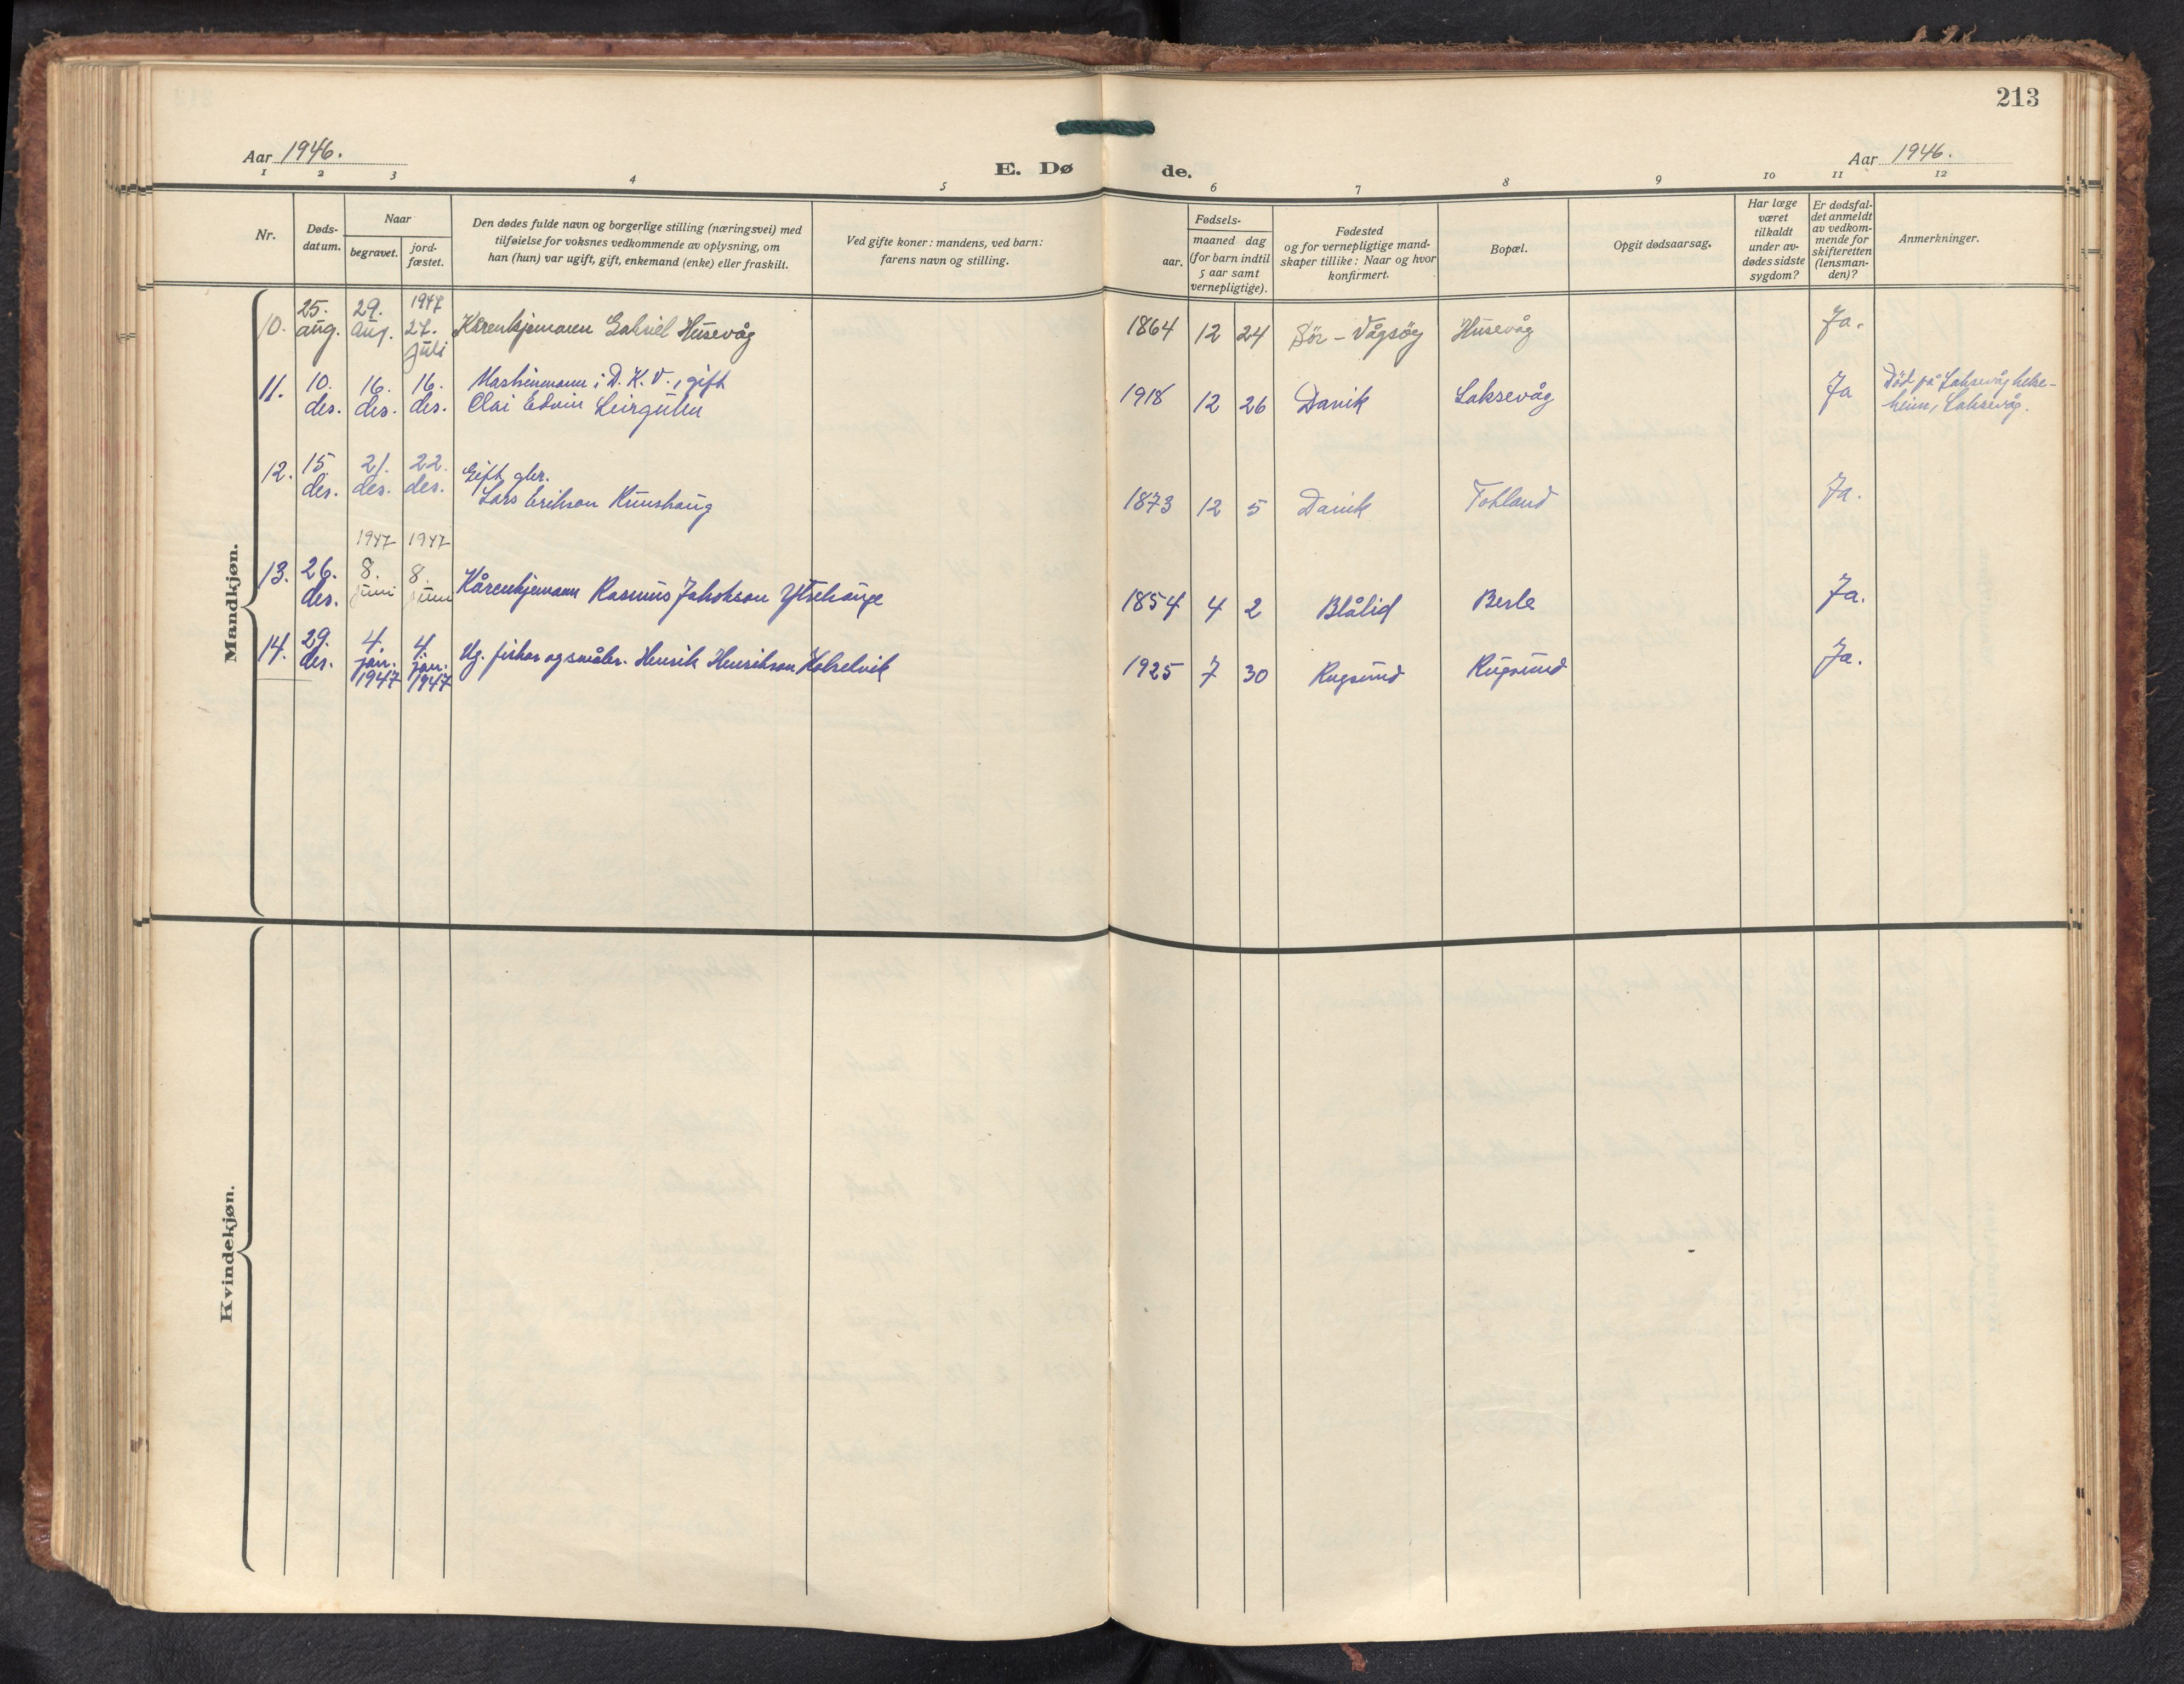 213
Aar 1946.
E. Dø de.
Aar 1946.
1 2 3 4 5 6 7 8 9 10 11 12
Nr.
Døds-
datum.
Naar
begravet.
jord-
fæstet.
Den dødes fulde navn og borgerlige stilling (næringsvei) med
tilføielse for voksnes vedkommende av oplysning, om
han (hun) var ugift, gift, enkemand (enke) eller fraskilt.
Ved gifte koner: mandens, ved barn:
farens navn og stilling.
Fødsels-
aar.
maaned dag
(for barn indtil
5 aar samt
vernepligtige).
Fødested
og for vernepligtige mand-
skaper tillike: Naar og hvor
konfirmert.
Bopæl.
Opgit dødsaarsag.
Har læge
været
tilkaldt
under av-
dødes sidste
sygdom?
Er dødsfal-
det anmeldt
av vedkom-
mende for
skifteretten
(lensman-
den)?
Anmerkninger.
Mandkjøn.
10. 25. aug. 29. aug. 1947 27. juli Kårenkjemann Gabriel Husevåg 1864 12 24 Sör-Vågsöy Husevåg Ja.
11. 10. des. 16. des. 16. des. Maskinmann i D. K. V., gift
Olai Edvin Leirgulen 1918 12 26 Davik Laksevåg Ja Död på Laksevåg helse-
heim, Laksevåg.
12. 15. des. 21. des. 22. des. Gift gbr.
Lars Erikson Runshaug 1873 12 5 Davik Tokland Ja.
13. 26. des. 1947 8. juni 1947 8. juni Kårenkjemann Rasmus Jakobson Ytrehauge 1854 4 2 Blålid Berle Ja.
14. 29. des. 4. jan. 1947 4. jan. 1947 Ug. fiskar og småbr. Henrik Henrikson 1925 7 30 Rugsund Rugsund Ja.
Kvindekjøn.